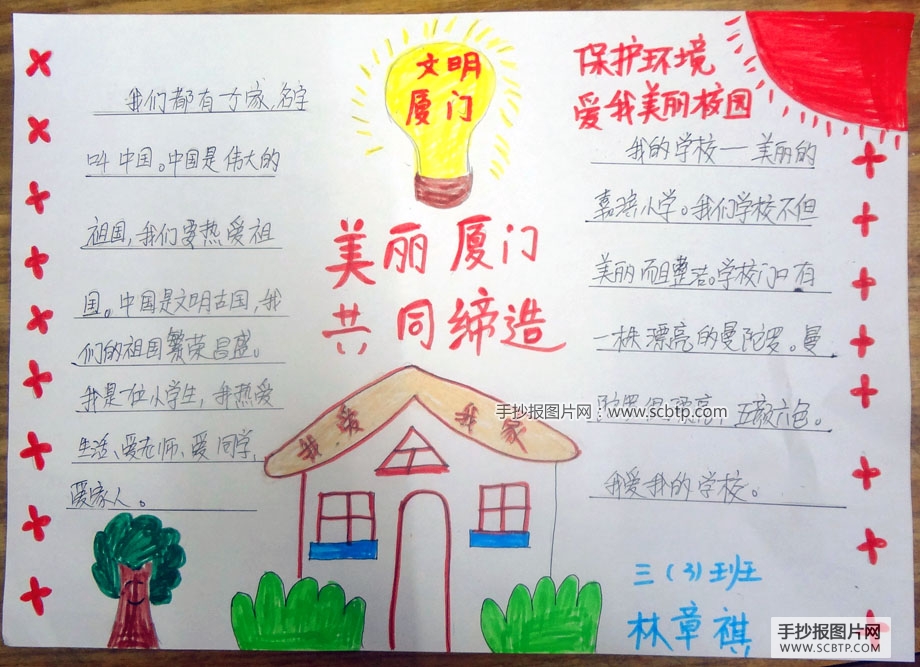 我们都有一个家,名字
叫中国。中国是伟大的
祖国,我们要热爱祖
国。中国是文明古国,我
们的祖国繁荣昌盛。
我是一位小学生,我热爱
生活、爱老师、爱同学,
爱家人。
文明
厦门
美丽厦门
共同缔造
我爱我家
保护环境
爱我美丽校园
我的学校一美丽的
嘉滨小学。我们学校不但
美丽而且整洁。学校门口有
一株漂亮的曼陀罗。曼
陀罗很漂亮,五颜六色。
我爱我的学校。
手抄报图片网:www.scbtp.com
三(3)班
林章祺
手抄报图片网
WWW.SCBTP.COM